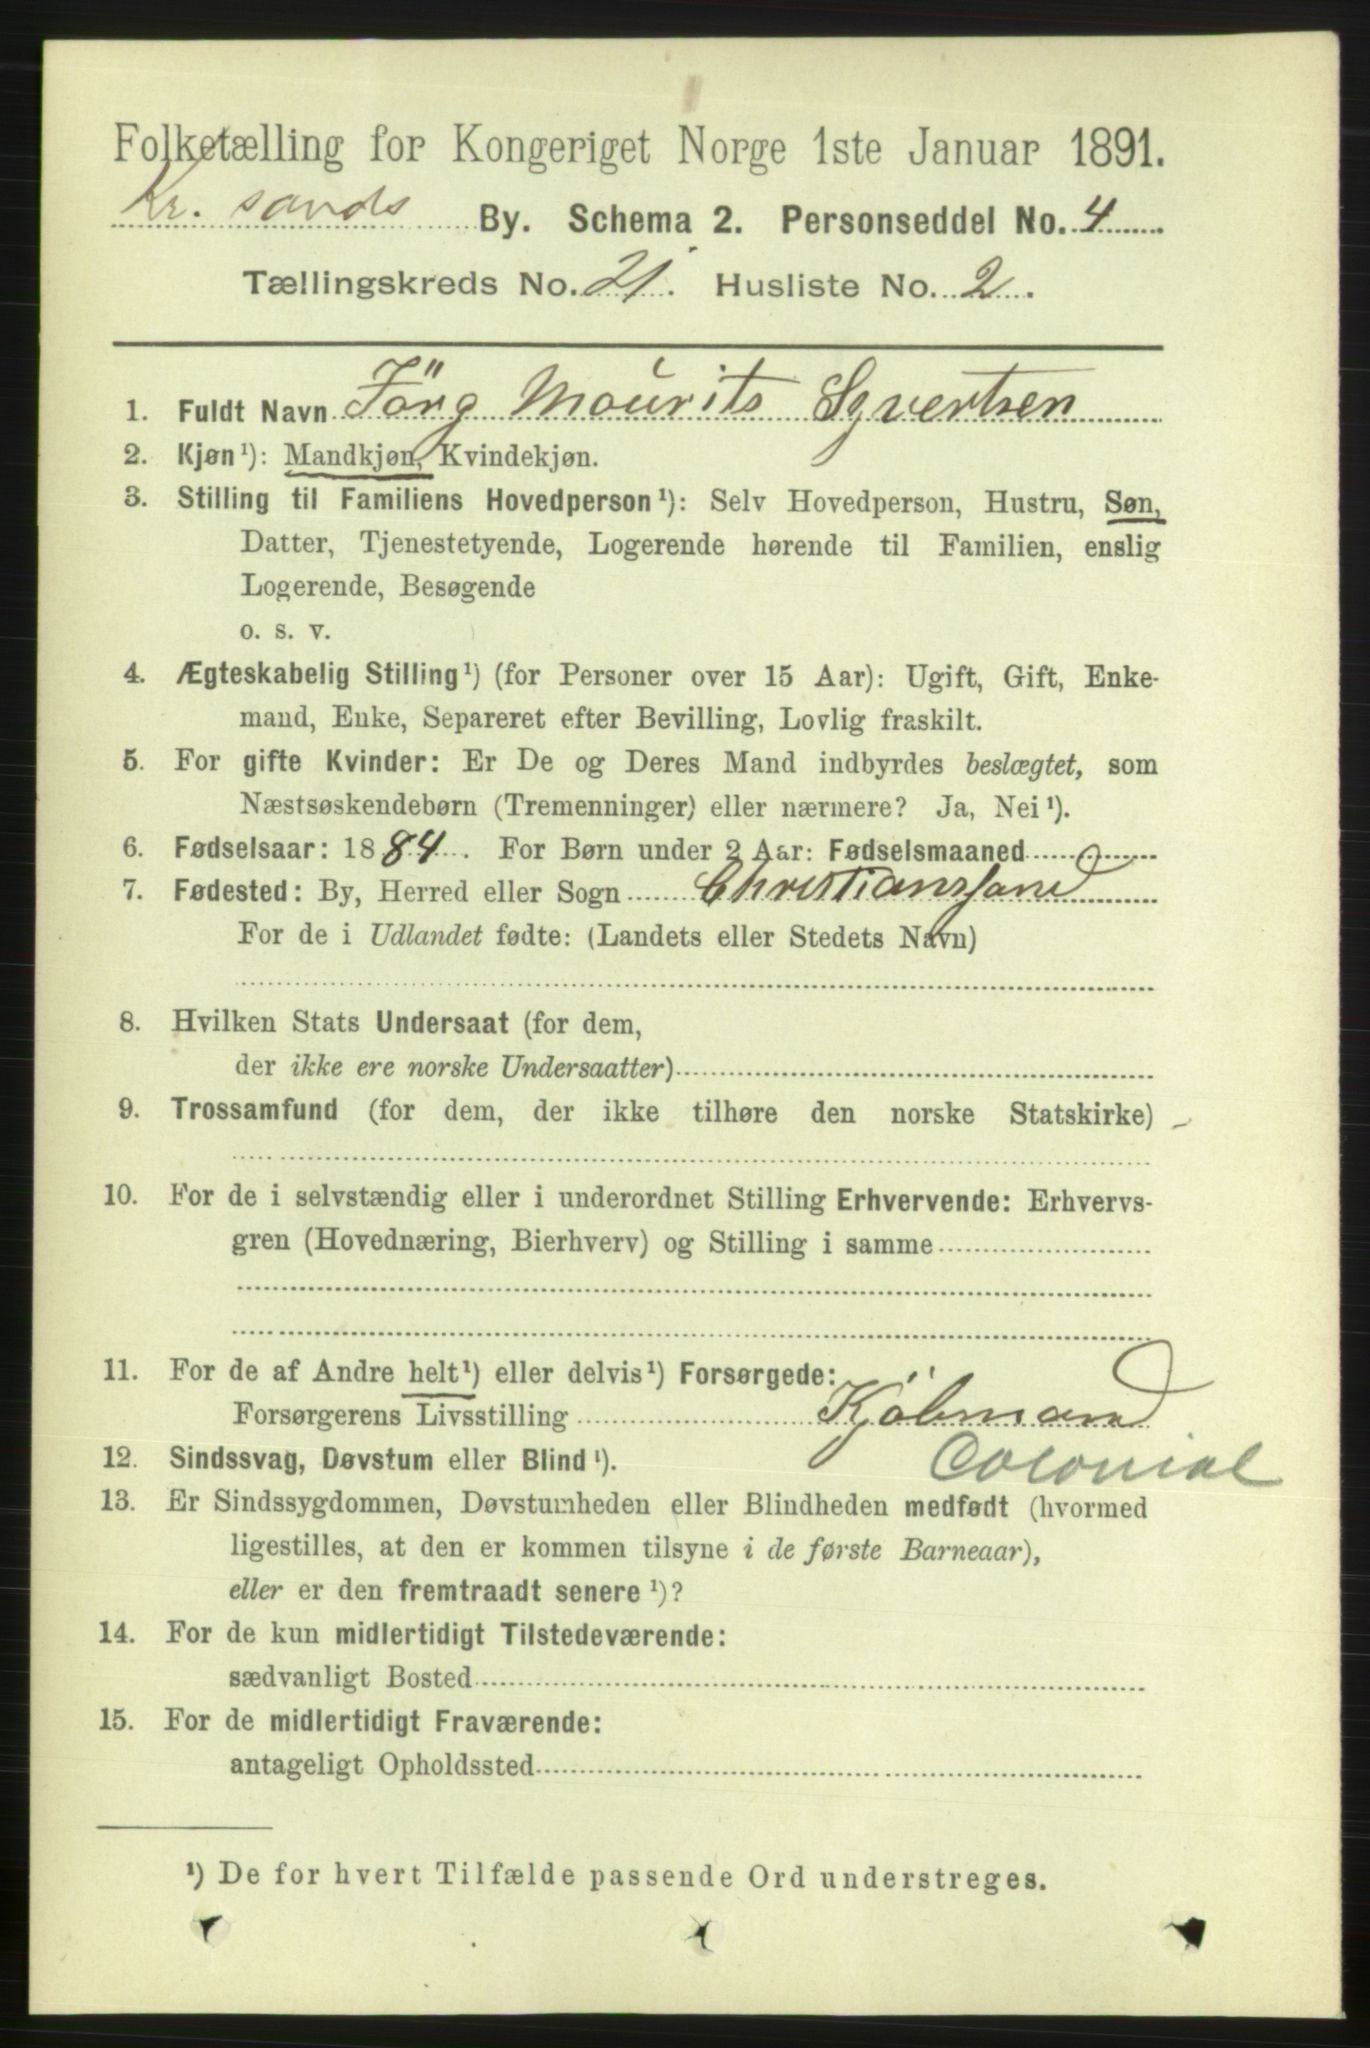 Folketælling for Kongeriget Norge 1ste Januar 1891.
Kr. sands By. Schema 2. Personseddel No. 4
Tællingskreds No. 21. Husliste No. 2
1. Fuldt Navn Jörg Mourits Syvertsen
2. Kjøn¹): Mandkjøn, Kvindekjøn.
3. Stilling til Familiens Hovedperson¹): Selv Hovedperson, Hustru, Søn,
Datter, Tjenestetyende, Logerende hørende til Familien, enslig
Logerende, Besøgende
o. s. v.
4. Ægteskabelig Stilling¹) (for Personer over 15 Aar): Ugift, Gift, Enke-
mand, Enke, Separeret efter Bevilling, Lovlig fraskilt.
5. For gifte Kvinder: Er De og Deres Mand indbyrdes beslægtet, som
Næstsøskendebørn (Tremenninger) eller nærmere? Ja, Nei¹).
6. Fødselsaar: 1884. For Børn under 2 Aar: Fødselsmaaned
7. Fødested: By, Herred eller Sogn Christianssand
For de i Udlandet fødte: (Landets eller Stedets Navn)
8. Hvilken Stats Undersaat (for dem,
der ikke ere norske Undersaatter)
9. Trossamfund (for dem, der ikke tilhøre den norske Statskirke) -
10. For de i selvstændig eller i underordnet Stilling Erhvervende: Erhvervs-
gren (Hovednæring, Bierhverv) og Stilling i samme
11. For de af Andre helt¹) eller delvis¹) Forsørgede:
Forsørgerens Livsstilling Kjöbmand
12. Sindssvag, Døvstum eller Blind¹). Colonial
13. Er Sindssygdommen, Døvstumheden eller Blindheden medfødt (hvormed
ligestilles, at den er kommen tilsyne i de første Barneaar),
eller er den fremtraadt senere¹)?
14. For de kun midlertidigt Tilstedeværende:
sædvanligt Bosted
15. For de midlertidigt Fraværende:
antageligt Opholdssted
¹) De for hvert Tilfælde passende Ord understreges.